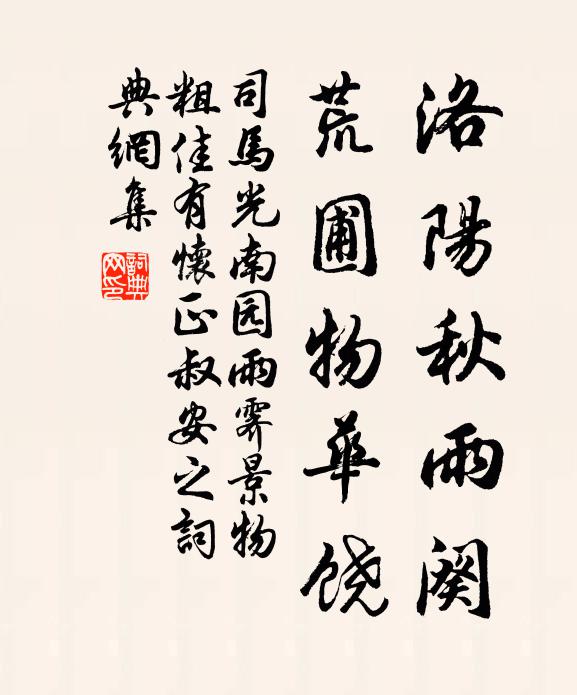 洛陽秋雨闋
荒圃物華饶
司馬光南园雨霽景物
粗佳有懷正叔安之詞
典網集
詞典网印